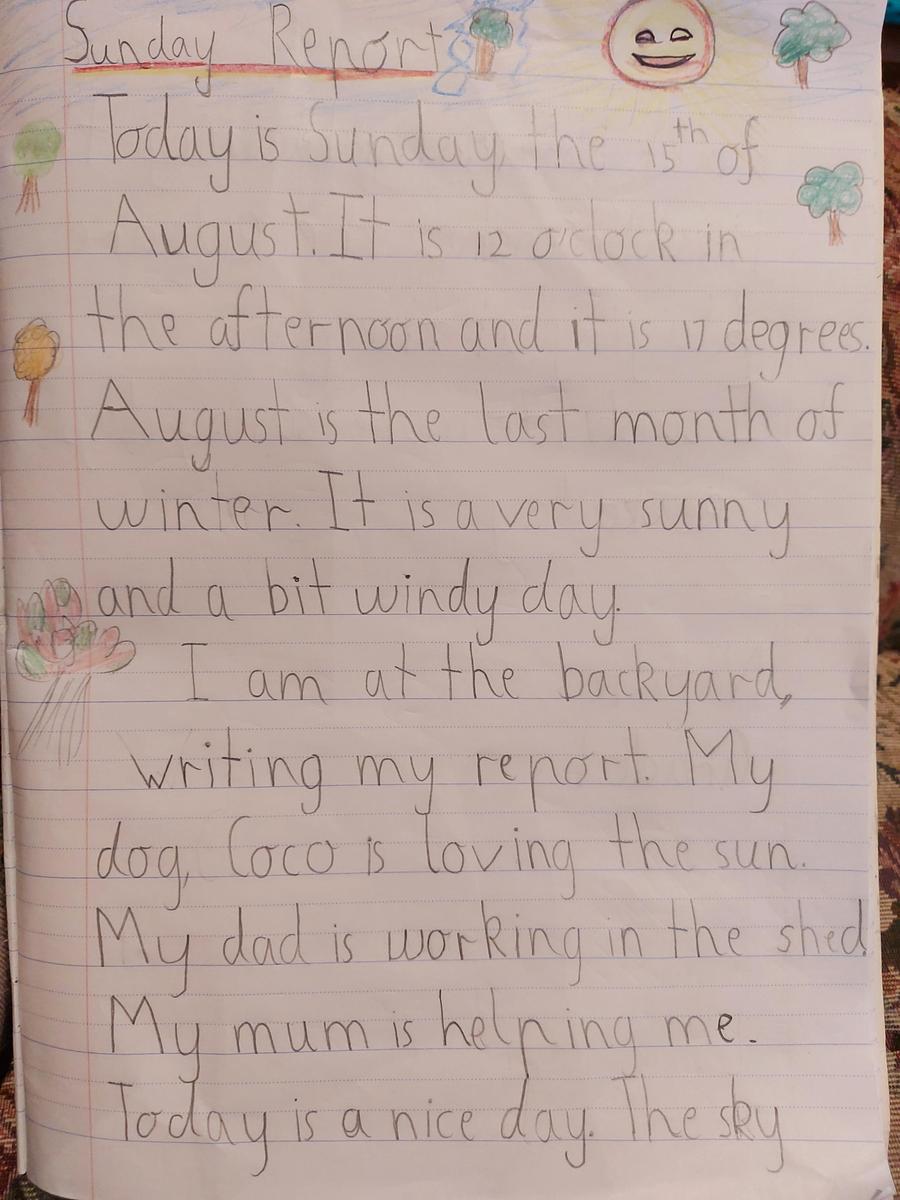 Sunday Report
Today is Sunday, the 15th of
August. It is 12 o'clock in
the afternoon and it is 17 degrees.
August is the last month of
winter. It is a very sunny
and a bit windy day.
I am at the backyard,
writing my report. My
dog, Coco is loving the sun.
My dad is working in the shed.
My mum is helping me.
Today is a nice day. The sky